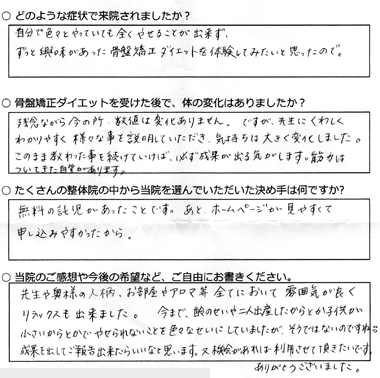 ○ どのような症状で来院されましたか?
自分で色々とやっていても全くやせることが出来ず、
ずっと興味があった骨盤矯正ダイエットを体験してみたいと思ったので。
○ 骨盤矯正ダイエットを受けた後で、体の変化はありましたか?
残念ながら今の所、数値は変化ありません。ですが、先生にくわしく
わかりやすく様々な事を説明していただき、気持ちは大きく変化しました。
このまま教わった事を続けていけば、必ず成果が出る気がします。筋力は
ついてきた自覚があります。
○ たくさんの整体院の中から当院を選んでいただいた決め手は何ですか?
無料の託児があったことです。あと、ホームページが見やすくて
申し込みやすかったから。
○ 当院のご感想や今後の希望など、ご自由にお書きください。
先生や奥様の人柄、お部屋やアロマ等全てにおいて雰囲気が良く
リラックスも出来ました。今まで、齢のせいや二人出産したからとか子供が
小さいからとかでやせられないことを色々なせいにしていましたが、そうではないのですね
成果を出してご報告出来たらいいなと思います。又機会があれば利用させて頂きたいです。
ありがとうございました。